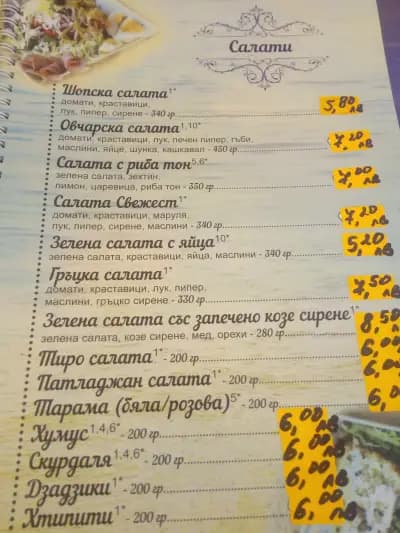 Салати
Шопска салата1*
домати, краставици,
лук, пипер, сирене - 340 гр. 5,80 лв
Овчарска салата1,10*
домати, краставици, лук, печен пипер, гъби,
маслини, яйце, шунка, кашкавал - 450 гр. 7,20 лв
Салата с риба тон5,6*
зелена салата, зехтин,
лимон, царевица, риба тон - 350 гр. 7,00 лв
Салата Свежест1*
домати, краставици, маруля,
лук, пипер, сирене, маслини - 340 гр. 7,20 лв
Зелена салата с яйца10*
зелена салата, краставици, яйца, маслини - 340 гр. 5,20 лв
Гръцка салата1*
домати, краставици, лук, пипер,
маслини, гръцко сирене - 330 гр. 7,50 лв
Зелена салата със запечено козе сирене1*
зелена салата, козе сирене, мед, орехи - 280 гр. 8,50
Тиро салата1* - 200 гр. 6,00
Патладжан салата1* - 200 гр. 6,00
Тарама (бяла/розова)5* - 200 гр. 6,0
Хумус1,4,6* - 200 гр. 6,00 лв
Скурдаля1,4,6* - 200 гр. 6,00 лв
Дзадзики1* - 200 гр. 6,00 лв
Хтипити1* - 200 гр. 6,00 лв